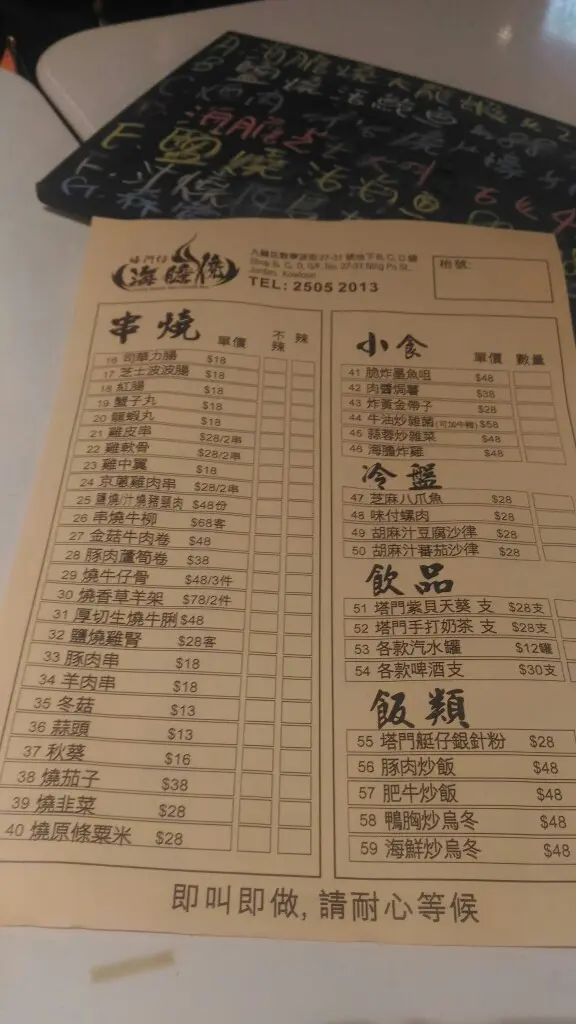 塔門仔
海膽燒
九龍佐敦寧波街27-31號地下B, C, D舖
Shop B, C, D, G/F, No. 27-31 Ning Po St.,
Jordan, Kowloon
TEL: 2505 2013
枱號:
串燒 單價 不辣 辣
16 司華力腸 $18
17 芝士波波腸 $18
18 紅腸 $18
19 蟹子丸 $18
20 龍蝦丸 $18
21 雞皮串 $28/2串
22 雞軟骨 $28/2串
23 雞中翼 $18
24 京蔥雞肉串 $28/2串
25 鹽燒/汁燒豬頸肉 $48份
26 串燒牛柳 $68客
27 金菇牛肉卷 $48
28 豚肉蘆筍卷 $38
29 燒牛仔骨 $48/3件
30 燒香草羊架 $78/2件
31 厚切生燒牛脷 $48
32 鹽燒雞腎 $28客
33 豚肉串 $18
34 羊肉串 $18
35 冬菇 $13
36 蒜頭 $13
37 秋葵 $16
38 燒茄子 $38
39 燒韭菜 $28
40 燒原條粟米 $28
小食 單價 數量
41 脆炸墨魚咀 $48
42 肉醬焗薯 $38
43 炸黃金帶子 $28
44 牛油炒雜菌(可加牛柳) $58
45 蒜蓉炒雜菜 $48
46 海膽炸雞 $48
冷盤
47 芝麻八爪魚 $28
48 味付螺肉 $28
49 胡麻汁豆腐沙律 $28
50 胡麻汁蕃茄沙律 $28
飲品
51 塔門紫貝天葵 支 $28支
52 塔門手打奶茶 支 $28支
53 各款汽水罐 $12罐
54 各款啤酒支 $30支
飯類
55 塔門艇仔銀針粉 $28
56 豚肉炒飯 $48
57 肥牛炒飯 $48
58 鴨胸炒烏冬 $48
59 海鮮炒烏冬 $48
即叫即做, 請耐心等候